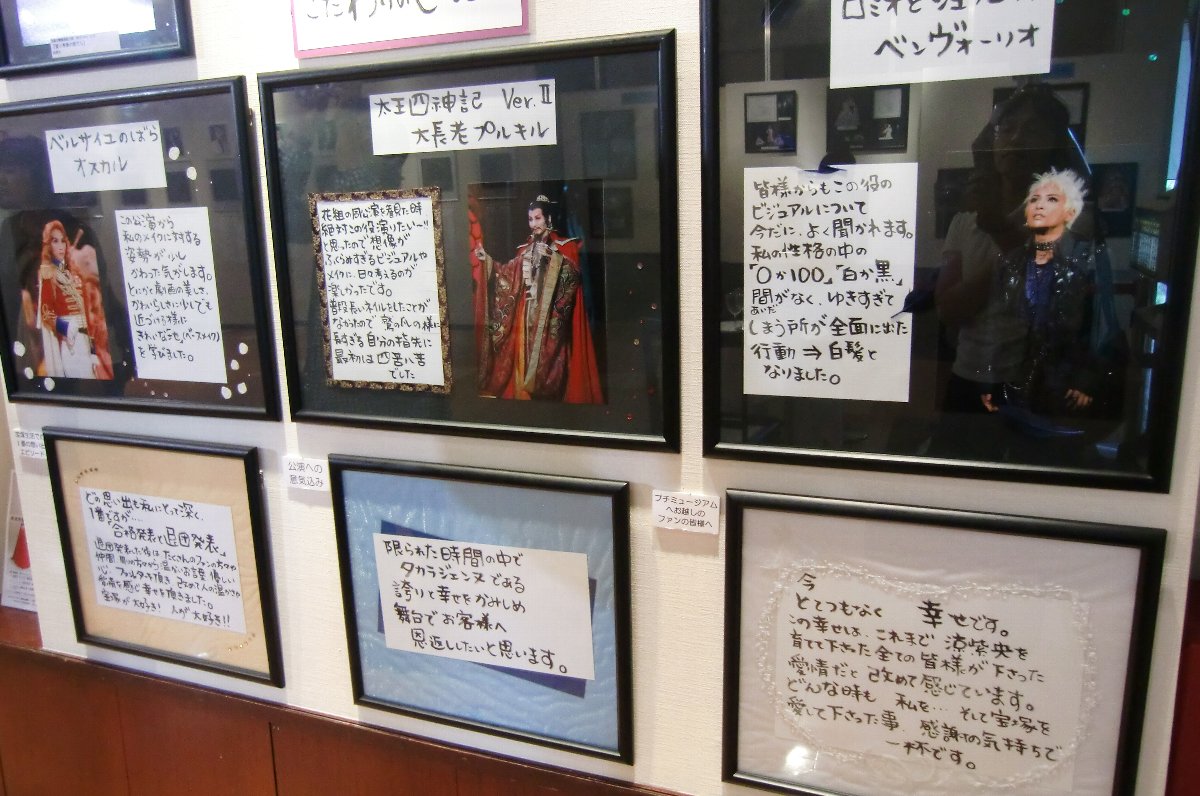 ロミオとジュリエット
ベンヴォーリオ
ベルサイユのばら
オスカル
この公演から
私のメイクに対する
姿勢が少し
かわった気がします。
とにかく劇画の美しさ、
かわいらしさに少しでも
近づける様に
きれいな土地(ベースメイク)
を学びました。
太王四神記 Ver.Ⅱ
大長老プルキル
花組の同公演を着見た時
絶対この役演りたい〜!!
と思ったので想像が
ふくらみすぎるビジュアルや
メイクに、日々考えるのが
楽しかったです。
普段長いネイルをしたことが
なかったので 鷲の爪の様に
長すぎる自分の指先に
最初は四苦八苦
でした
皆様からもこの役の
ビジュアルについて
今だに、よく聞かれます。
私の性格の中の
「0か100」「白か黒」
間がなく、ゆきすぎて
あいだ
しまう所が全面に出た
行動⇒白髪と
なりました。
公演への
意気込み
プチミュージアム
へお越しの
ファンの皆様へ
どの思い出も私にとって深く、
1番ですが…
「合格発表と退団発表」
退団発表した後は たくさんのファンの方々や
宝塚が大好き! 人が大好き!!
限られた時間の中で
タカラジェンヌである
誇りと幸せをかみしめ
舞台でお客様へ
恩返ししたいと思います。
今
とてつもなく 幸せです。
この幸せは、これまで 涼紫央を
育てて下さった全ての皆様が下さった
愛情だと改めて感じています。
どんな時も 私を… そして宝塚を
愛して下さった事、感謝の気持ちで
一杯です。